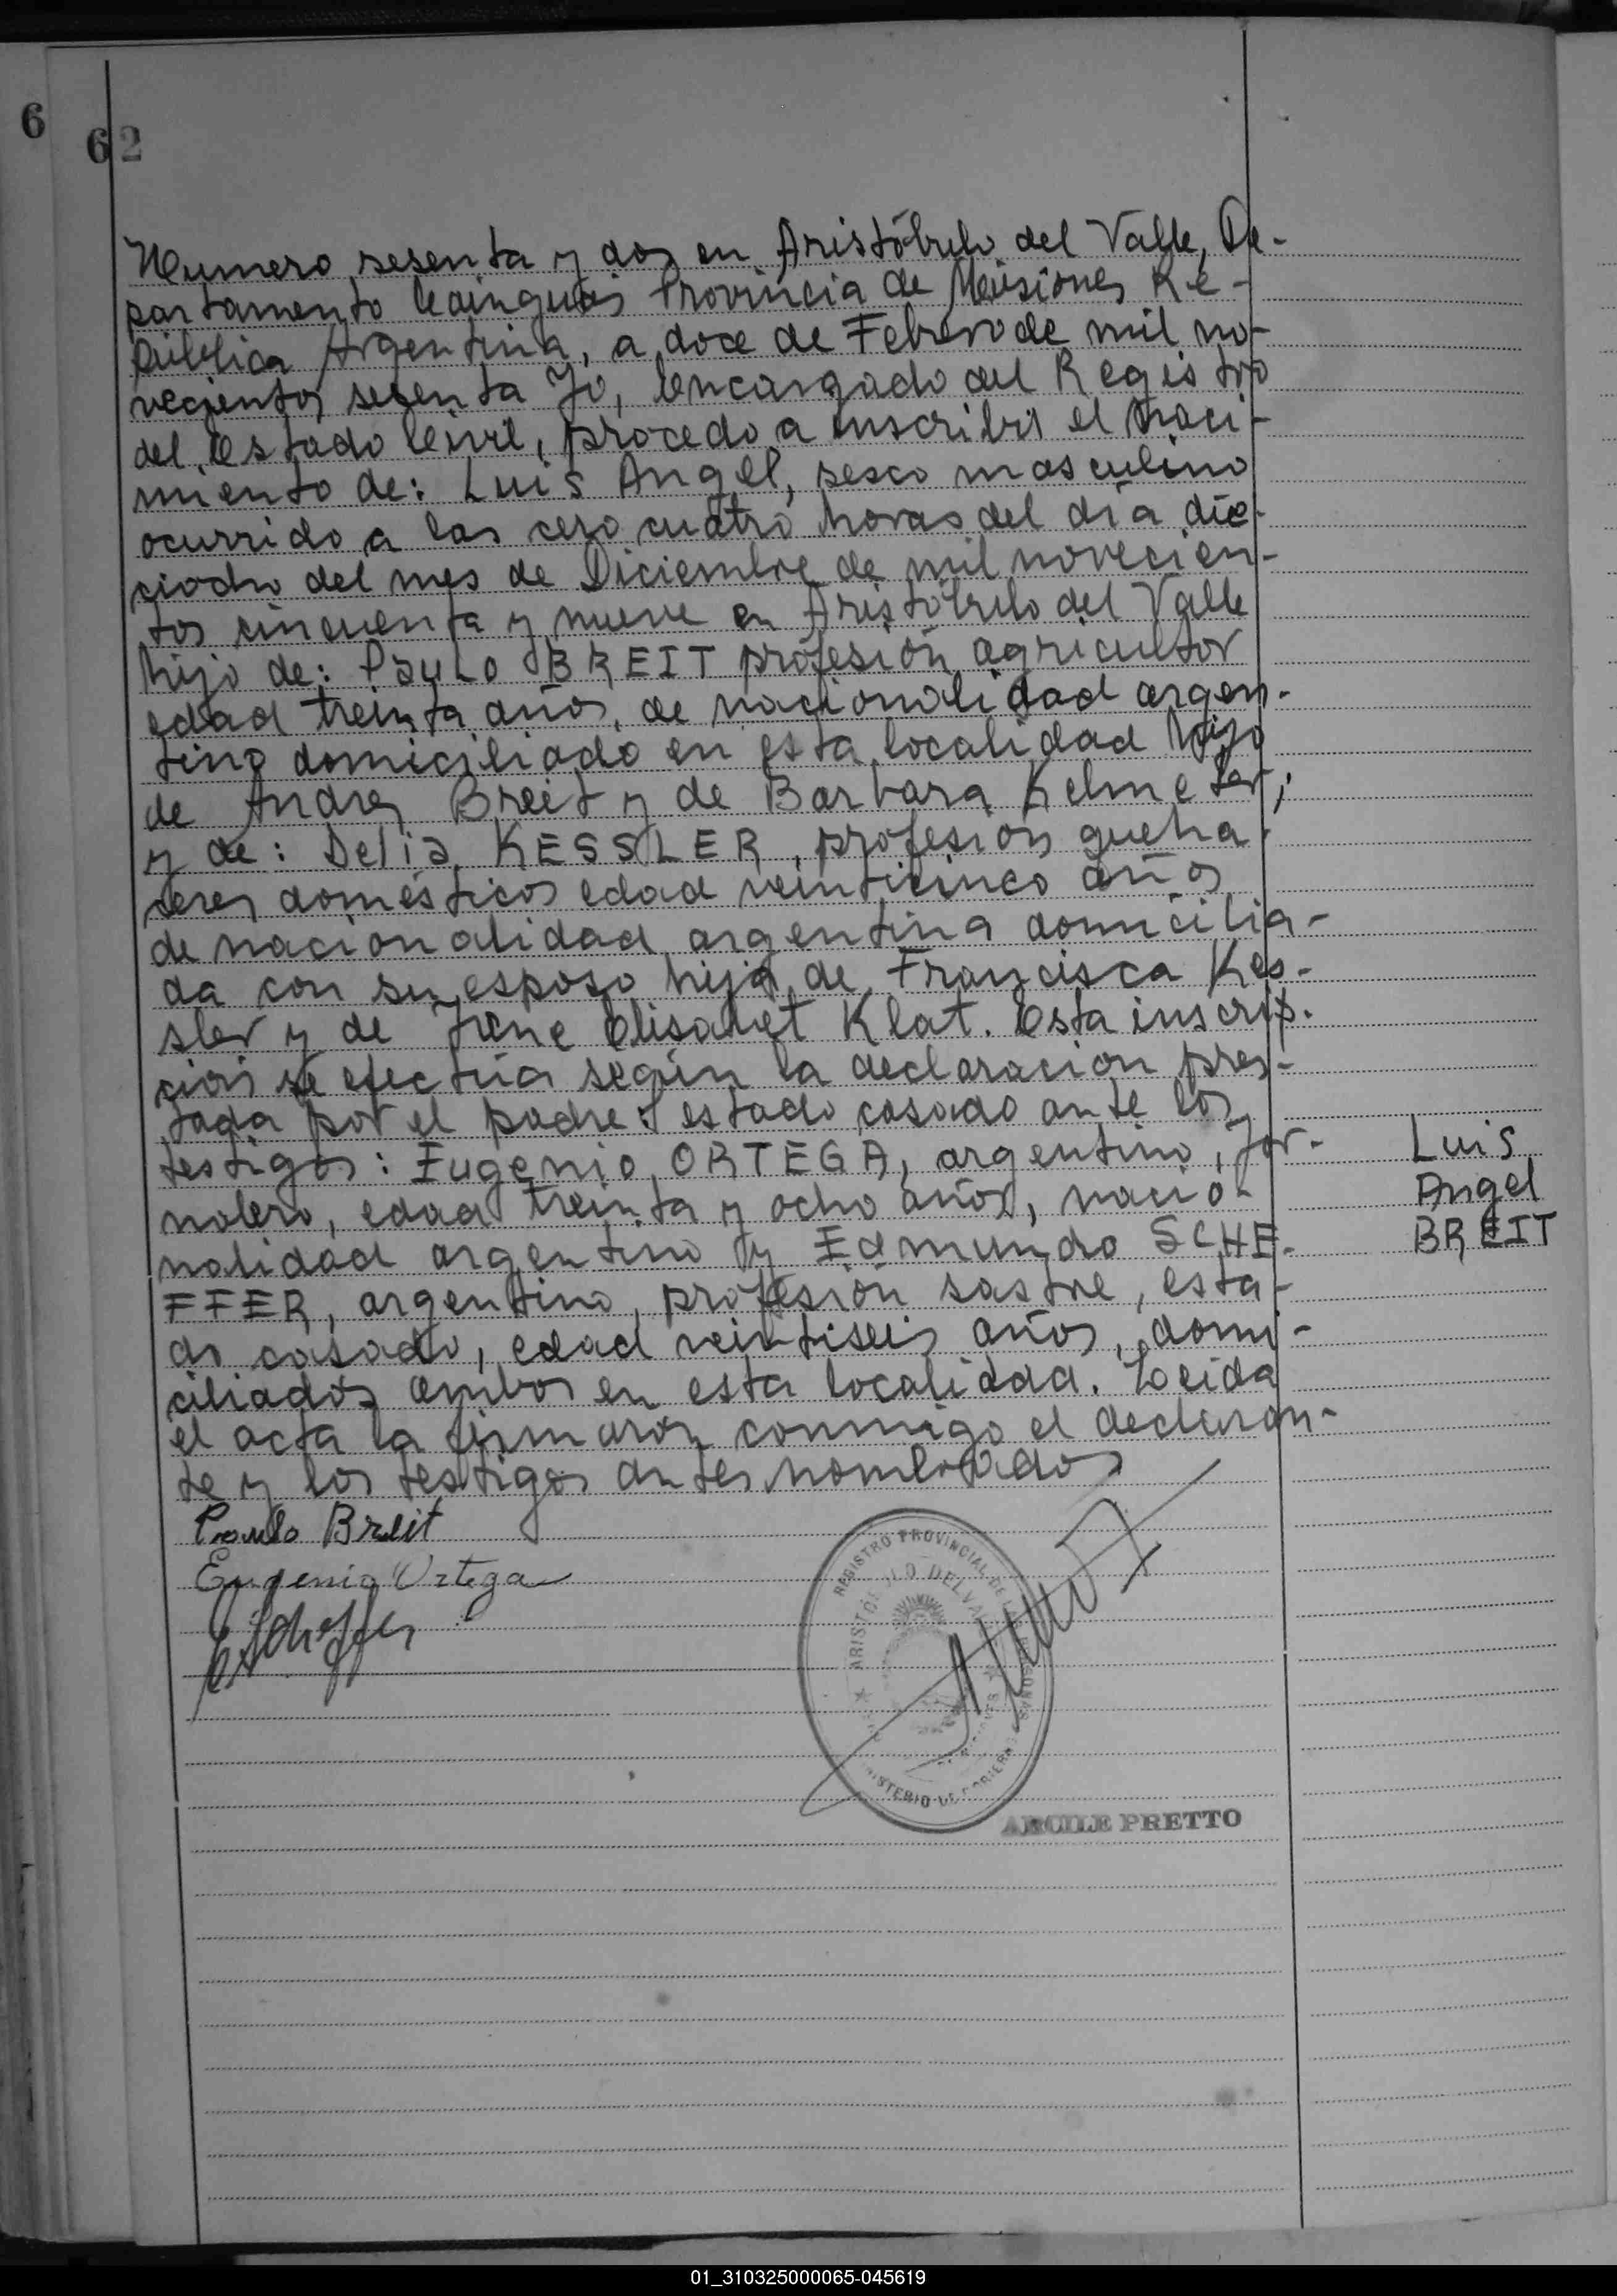 6
62
Numero sesenta y dos en Aristóbulo del Valle, De-
partamento Cainguás Provincia de Misiones Re-
pública Argentina, a doce de Febrero de mil no-
vecientos sesenta Yo, Encargado del Registro
del Estado Civil, procedo a inscribir el naci-
miento de: Luis Angel, sexo masculino
ocurrido a las cero cuatro horas del día die-
ciocho del mes de Diciembre de mil novecien-
tos cincuenta y nueve en Aristóbulo del Valle
hijo de: Paulo BREIT profesión agricultor
edad treinta años, de nacionalidad argen-
tino domiciliado en esta localidad hijo
de Andres Breit y de Barbara Kelmeter;
y de: Delia KESSLER, profesión queha-
seres domésticos edad veinticinco años
de nacionalidad argentina domicilia-
da con su esposo hija de Francisca Kes-
sler y de Irene Elisabet Klat. Esta inscrip-
ción se efectúa según la declaración pres-
tada por el padre: estado casado ante los
testigos: Eugenio ORTEGA, argentino, jor-
nalero, edad treinta y ocho años, nacio-
nalidad argentino y Edmundo SCHE-
FFER, argentino, profesión sastre, esta-
do casado, edad veintiseis años, domi-
ciliados ambos en esta localidad. Leida
el acta la firmaron conmigo el declaran-
te y los testigos antes nombrados
Luis
Angel
BREIT
Paulo Breit
Eugenio Ortega
EScheffer
REGISTRO PROVINCIAL DE
ARISTÓBULO DEL VALLE
MINISTERIO DE GOBIERNO
ARCILE PRETTO
01_310325000065-045619